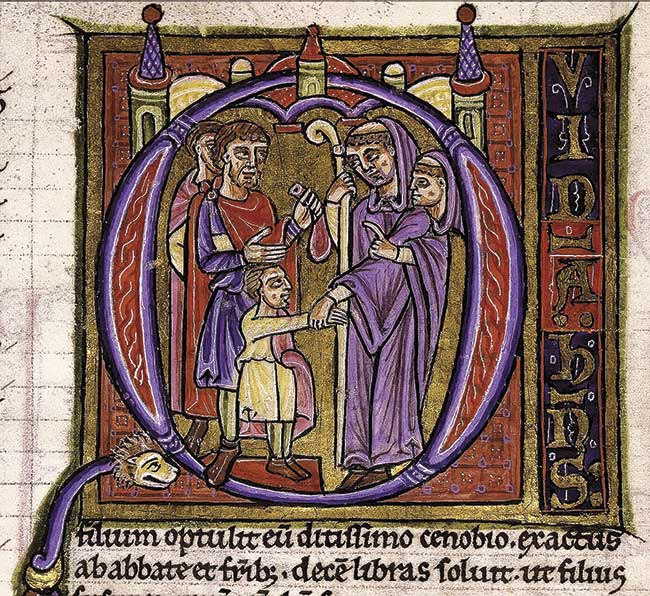 QVIDA. hNS:
filium optulit eū ditissimo cenobio. exactus
ab abbate et fr̄ib; . decē libras soluit. ut filius